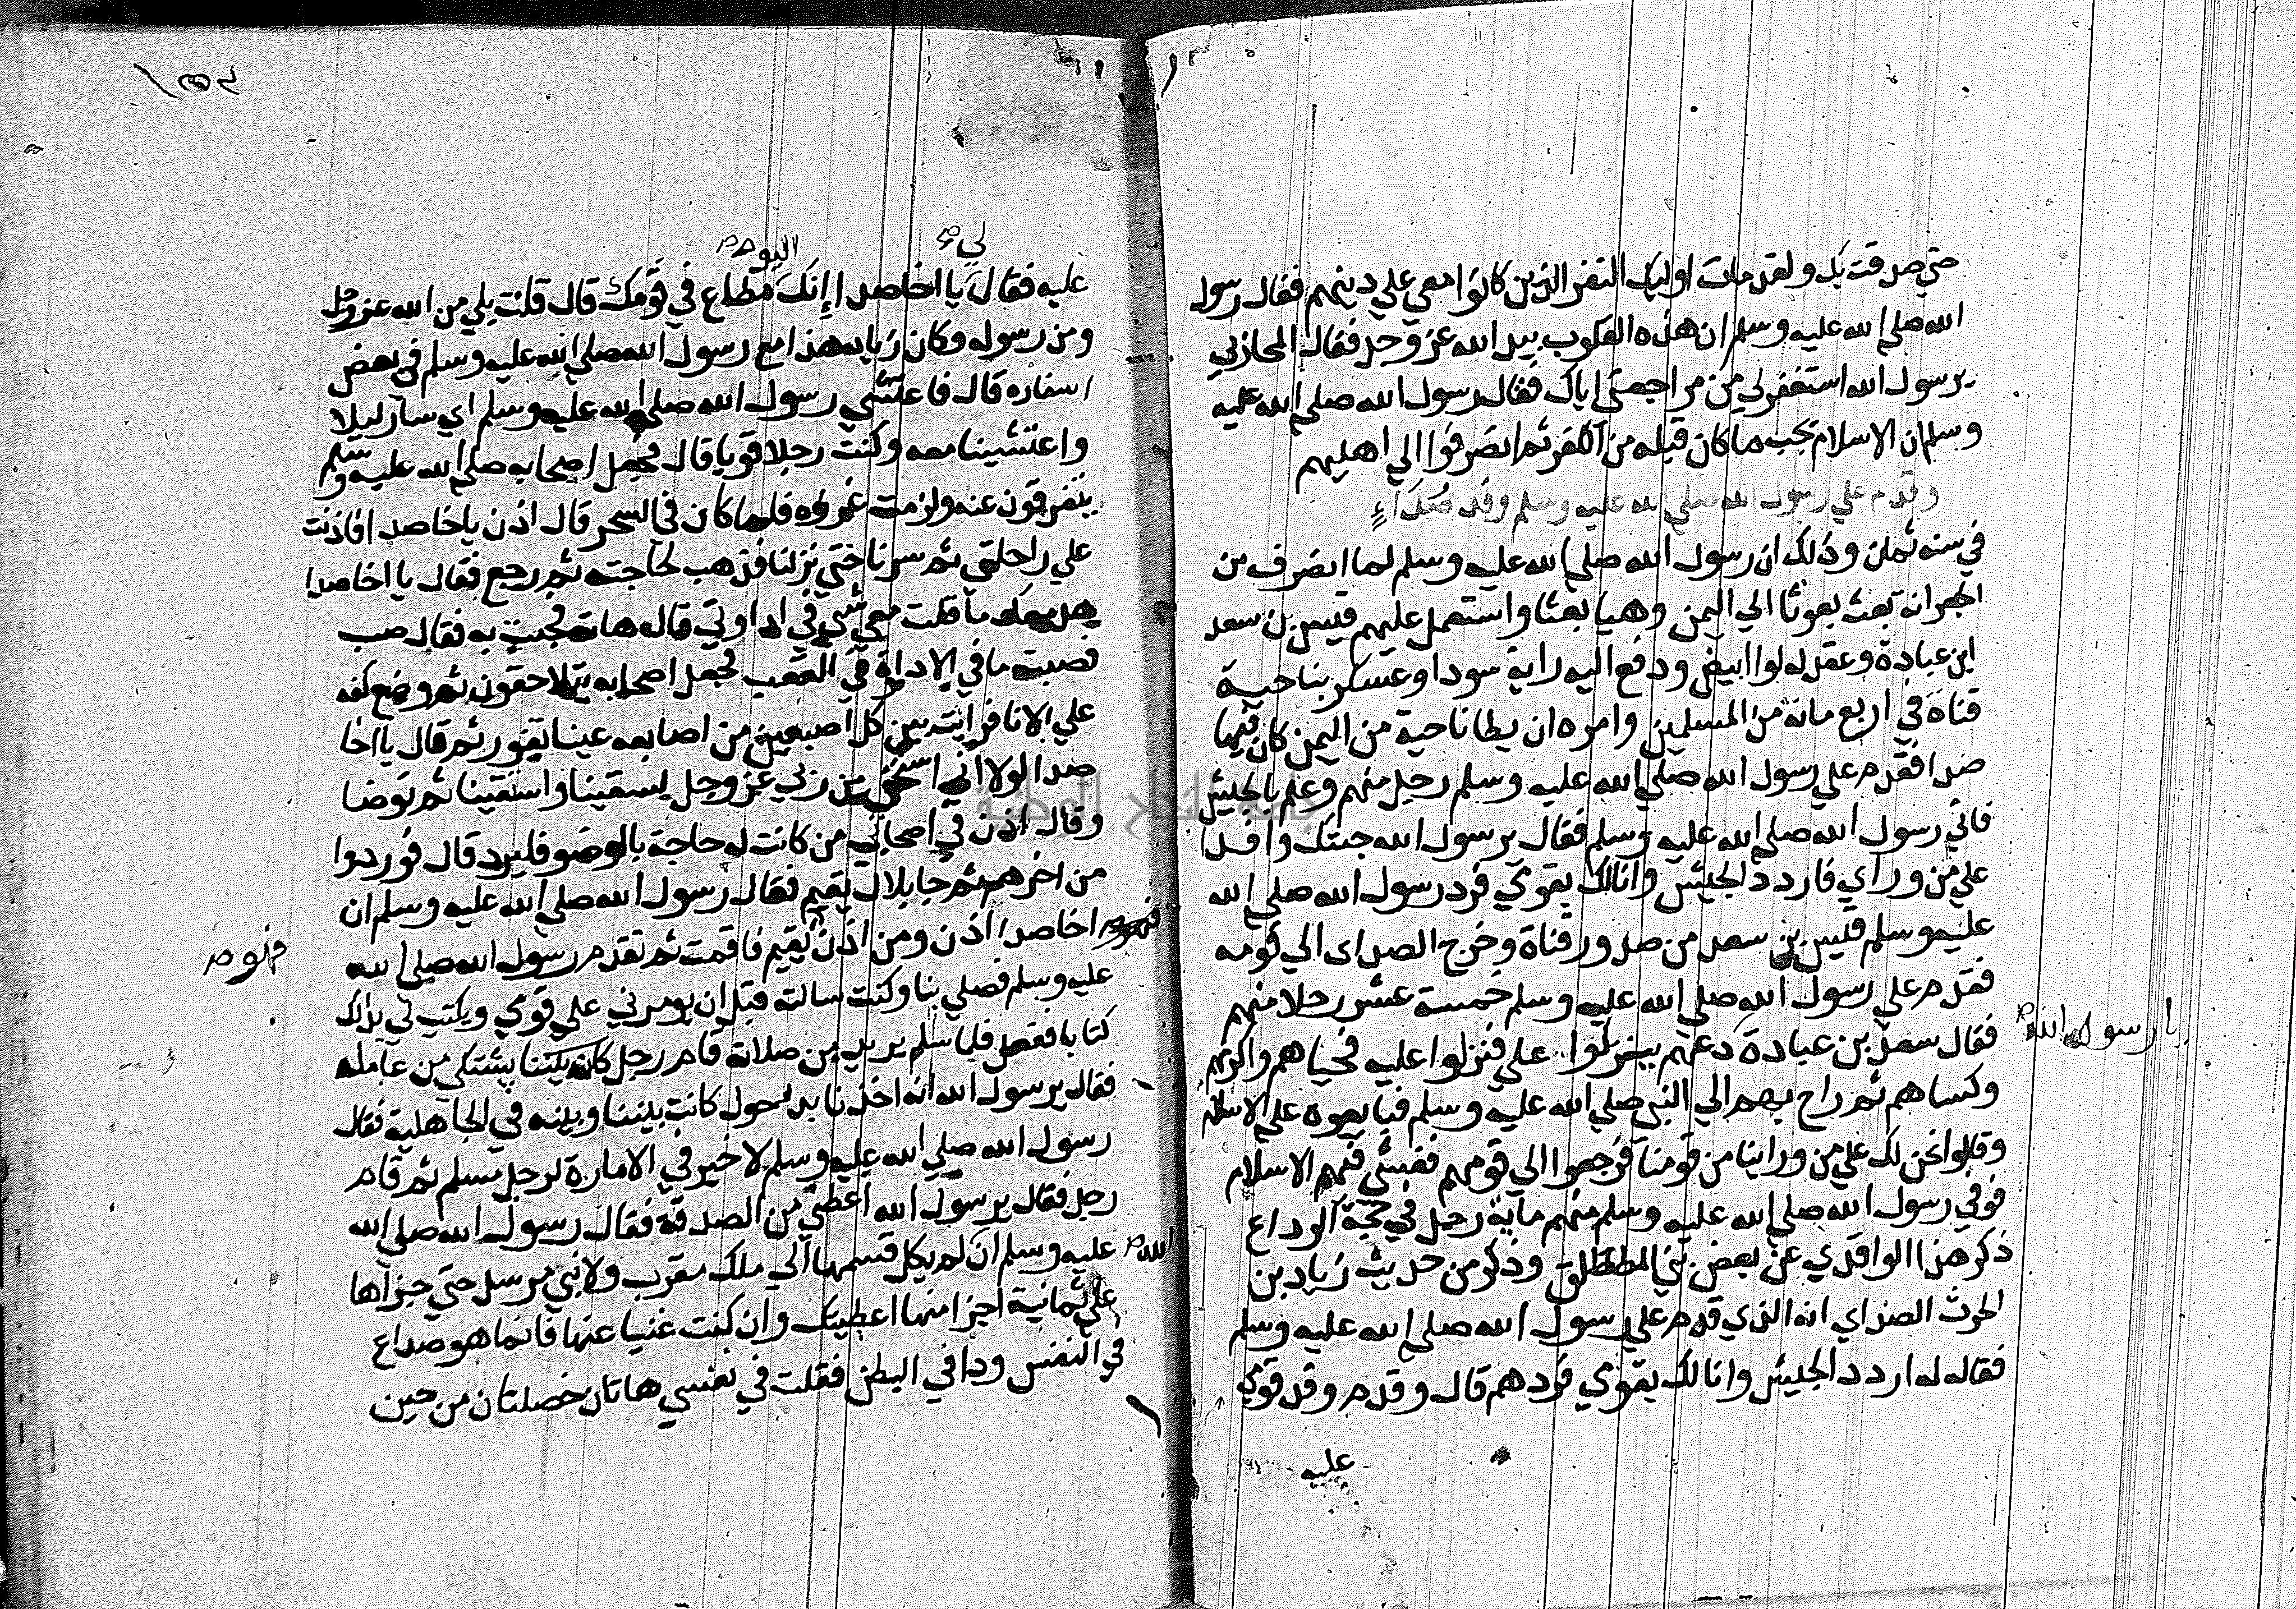 حتي صدقت بك ولقد مات اوليك النفر الذين كانوا معي علي دينهم فقال رسول
الله صلي الله عليه وسلم ان هذه القلوب بيد الله عز وجل فقال المحاربي
يرسول الله استغفر لي من مراجعتي اياك فقال رسول الله صلي الله عليه
وسلم ان الاسلام يجب ما كان قبله من الكفر ثم انصرفوا الي اهليهم
وقدم علي رسول الله صلي الله عليه وسلم وفد صداء
في سنه ثمان وذلك ان رسول الله صلي الله عليه وسلم لما انصرف من
الجعرانة بعث بعوثا الي اليمن وهيا بعثا واستعمل عليهم قيس بن سعد
ابن عبادة وعقد له لوا ابيض ودفع اليه راية سودا وعسكر بناحية
قناة في اربع مائة من المسلمين وامره ان يطا ناحية من اليمن كان فيها
صدا فقدم علي رسول الله صلي الله عليه وسلم رجل منهم وعلم بالجيش
فاتي رسول الله صلي الله عليه وسلم فقال يرسول الله جيتك وافدا
علي من وراي فاردد الجيش وانا لك بقومي فرد رسول الله صلي الله
عليه وسلم قيس بن سعد من صدور قناة وخرج الصداي الي قومه
فقدم علي رسول الله صلي الله عليه وسلم خمسة عشر رجلا منهم
فقال سعد بن عبادة دعهم ينزلوا علي فنزلوا عليه فحياهم واكرمهم
يا رسول الله
وكساهم ثم راح بهم الي النبي صلي الله عليه وسلم فبايعوه علي الاسلام
وقالوا نحن لك علي من وراينا من قومنا فرجعوا الي قومهم ففشي فيهم الاسلام
فوفي رسول الله صلي الله عليه وسلم منهم ماية رجل في حجة الوداع
ذكر هذا الواقدي عن بعض بني المصطلق وذكر من حديث زياد بن
الحرث الصداي انه الذي قدم علي رسول الله صلي الله عليه وسلم
فقال له اردد الجيش وانا لك بقومي فردهم قال وقدم وفد قومي
عليه
لي
اليوم
عليه فقال يا اخا صدا انك مطاع في قومك قال قلت بلي من الله عز وجل
ومن رسوله وكان زياد هذا مع رسول الله صلي الله عليه وسلم في بعض
اسفاره قال فاعتشي رسول الله صلي الله عليه وسلم اي سار ليلا
واعتشينا معه وكنت رجلا قويا قال فجعل اصحابه صلي الله عليه وسلم
يتفرقون عنه ولزمت غرزه فلما كان في السحر قال اذن يا خا صدا فاذنت
علي راحلتي ثم سرنا حتي نزلنا فذهب لحاجته ثم رجع فقال يا اخا صدا
هل معك ما قلت معي شي في اداوتي قال هاته فجيت به فقال صب
فصببت ما في الاداوة في القعب فجعل اصحابه يتلاحقون ثم وضع كفه
علي الانا فرايت بين كل اصبعين من اصابعه عينا تفور ثم قال يا اخا
صدا لولا اني استحيي من ربي عز وجل لسقينا واستقينا ثم توضا
وقال اذن في اصحابي من كانت له حاجة بالوضو فليرد قال فوردوا
من اخرهم ثم جا بلال يقيم فقال رسول الله صلي الله عليه وسلم ان
اخا صدا اذن ومن اذن يقيم فاقمت ثم تقدم رسول الله صلي الله
فهو
عليه وسلم فصلي بنا وكنت سالته قبل ان يومرني علي قومي ويكتب لي بذلك
كتابا ففعل فلما سلم يريد من صلاته قام رجل يشتكي من عامله
فقال يرسول الله انه اخذنا بدخول كانت بيننا وبينه في الجاهلية فقال
رسول الله صلي الله عليه وسلم لا خير في الامارة لرجل مسلم ثم قام
رجل فقال يرسول الله اعطني من الصدقة فقال رسول الله صلي الله
عليه وسلم ان لم يكل قسمها الي ملك مقرب ولا نبي مرسل حتي جزاها
الله
علي ثمانية اجزا منها اعطيتك وان كنت غنيا عنها فانما هو صداع
في النفس ودا في البطن فقلت في نفسي هاتان خصلتان من حين